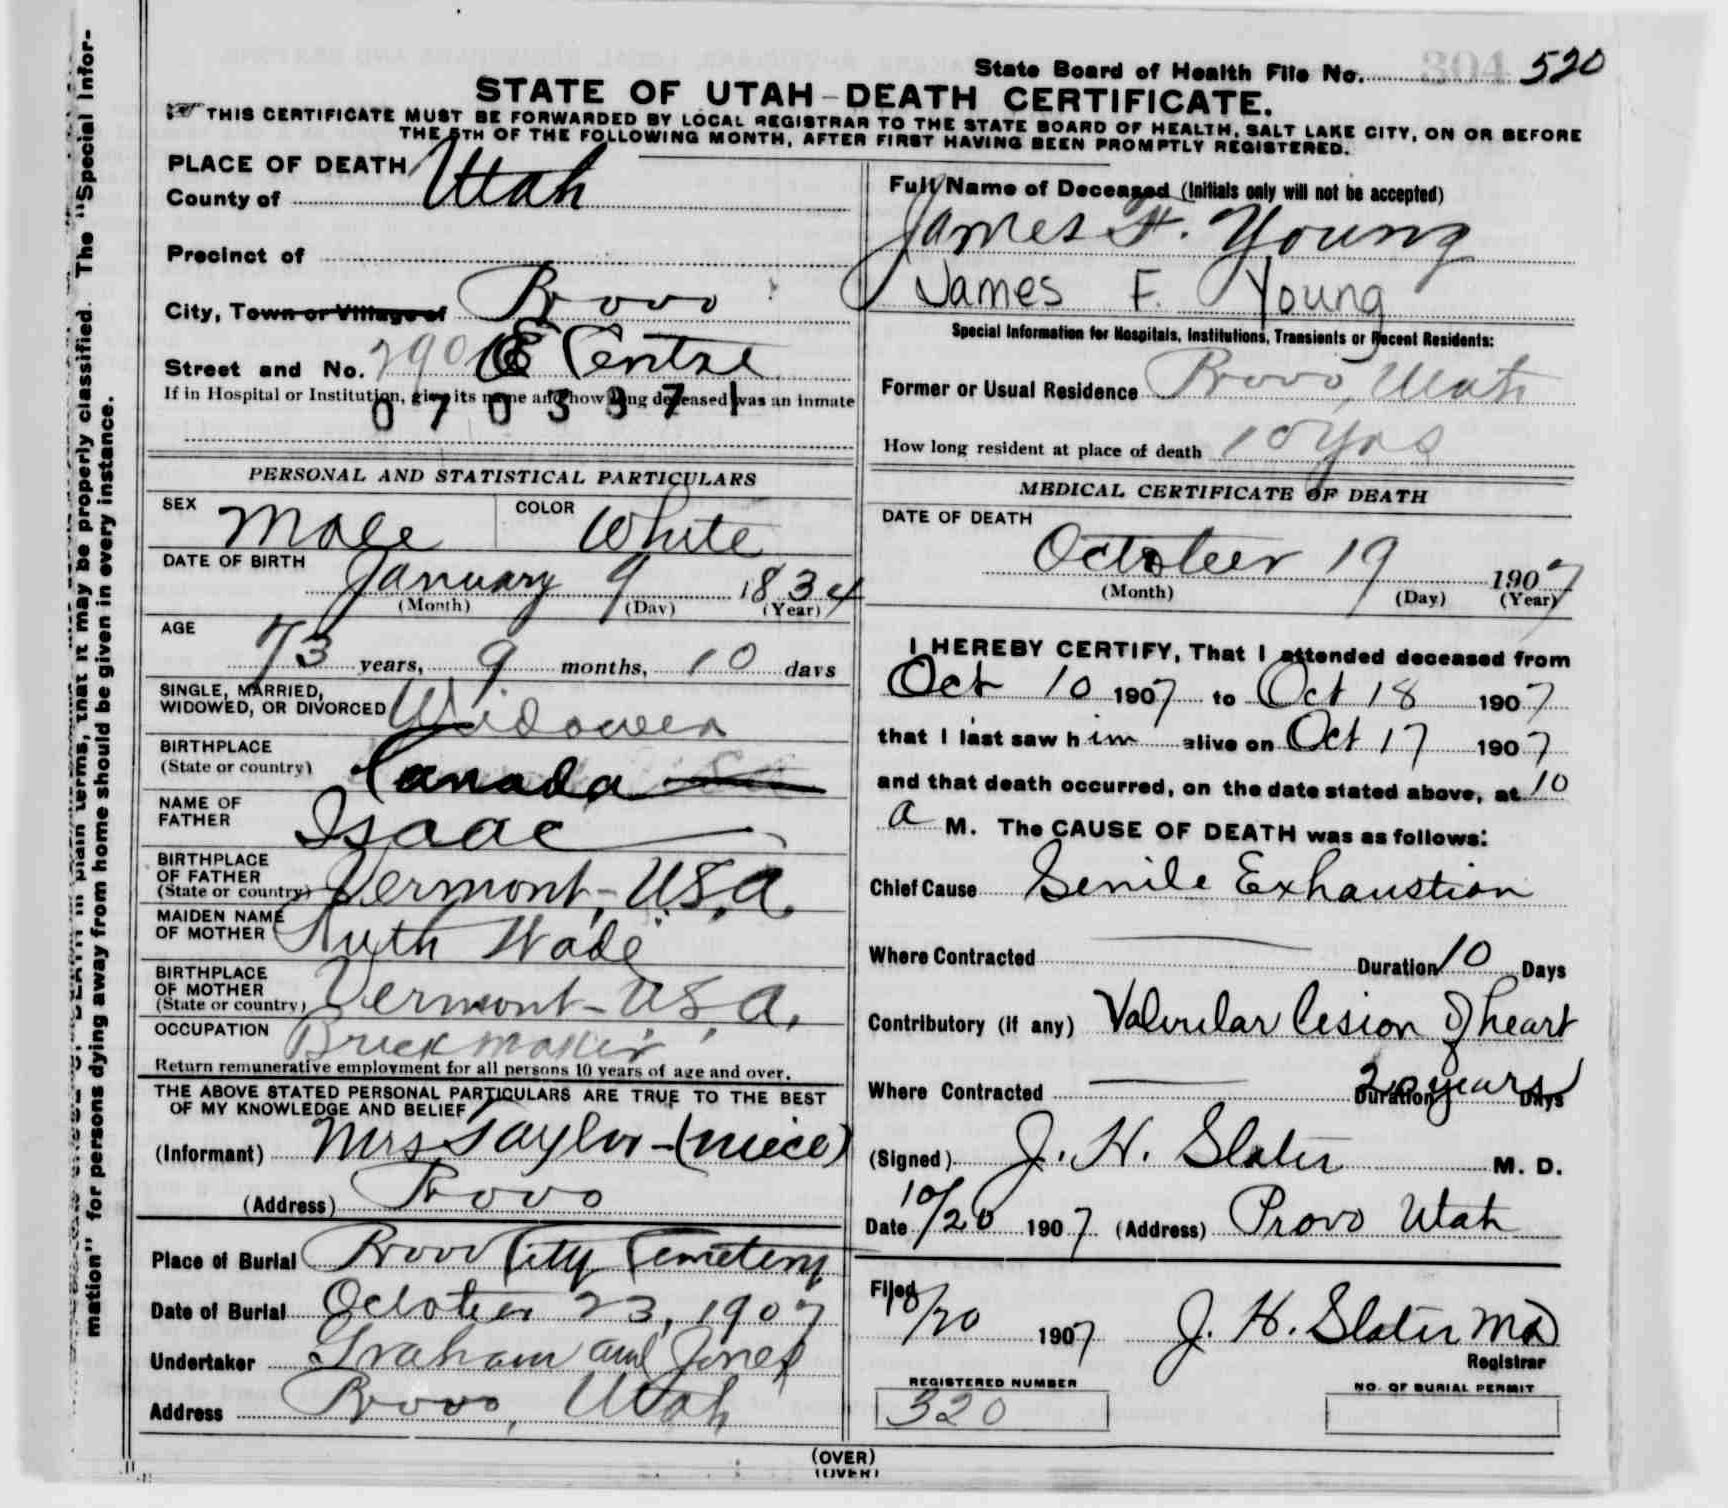 State Board of Health File No. 304 520
STATE OF UTAH-DEATH CERTIFICATE.
THIS CERTIFICATE MUST BE FORWARDED BY LOCAL REGISTRAR TO THE STATE BOARD OF HEALTH, SALT LAKE CITY, ON OR BEFORE
THE 5TH OF THE FOLLOWING MONTH, AFTER FIRST HAVING BEEN PROMPTLY REGISTERED.
PLACE OF DEATH
County of Utah
Precinct of
City, Town or Village of Provo
Street and No. 290 E Centre
If in Hospital or Institution, give its name and how long deceased was an inmate
0 7 0 3 3 7 1
PERSONAL AND STATISTICAL PARTICULARS
SEX Male COLOR White
DATE OF BIRTH
January 9 1834
(Month) (Day) (Year)
AGE
73 years, 9 months, 10 days
SINGLE, MARRIED,
WIDOWED, OR DIVORCED Widower
BIRTHPLACE
(State or country) Canada
NAME OF
FATHER Isaac
BIRTHPLACE
OF FATHER
(State or country) Vermont, U.S.A.
MAIDEN NAME
OF MOTHER Ruth Wade
BIRTHPLACE
OF MOTHER
(State or country) Vermont - U.S.A.
OCCUPATION Brick maker
Return remunerative employment for all persons 10 years of age and over.
THE ABOVE STATED PERSONAL PARTICULARS ARE TRUE TO THE BEST
OF MY KNOWLEDGE AND BELIEF
(Informant) Mrs Taylor - (niece)
(Address) Provo
Place of Burial Provo City Cemetery
Date of Burial October 23, 1907
Undertaker Graham and Jones
Address Provo, Utah
Full Name of Deceased (Initials only will not be accepted)
James F. Young
James F. Young
Special Information for Hospitals, Institutions, Transients or Recent Residents:
Former or Usual Residence Provo, Utah
How long resident at place of death 10 yrs
MEDICAL CERTIFICATE OF DEATH
DATE OF DEATH
October 19 1907
(Month) (Day) (Year)
I HEREBY CERTIFY, That I attended deceased from
Oct 10 1907 to Oct 18 1907
that I last saw him alive on Oct 17 1907
and that death occurred, on the date stated above, at 10
a M. The CAUSE OF DEATH was as follows:
Chief Cause Senile Exhaustion
Where Contracted Duration 10 Days
Contributory (if any) Valvular lesion of heart
Where Contracted Duration 20 years Days
(Signed) J. H. Slater M. D.
Date 10/20 1907 (Address) Provo Utah
Filed
10/20 1907 J. H. Slater MD
Registrar
REGISTERED NUMBER
320
NO. OF BURIAL PERMIT
(OVER)
(OVER)
mation" for persons dying away from home should be given in every instance.
in plain terms, that it may be properly classified. The "Special Infor-